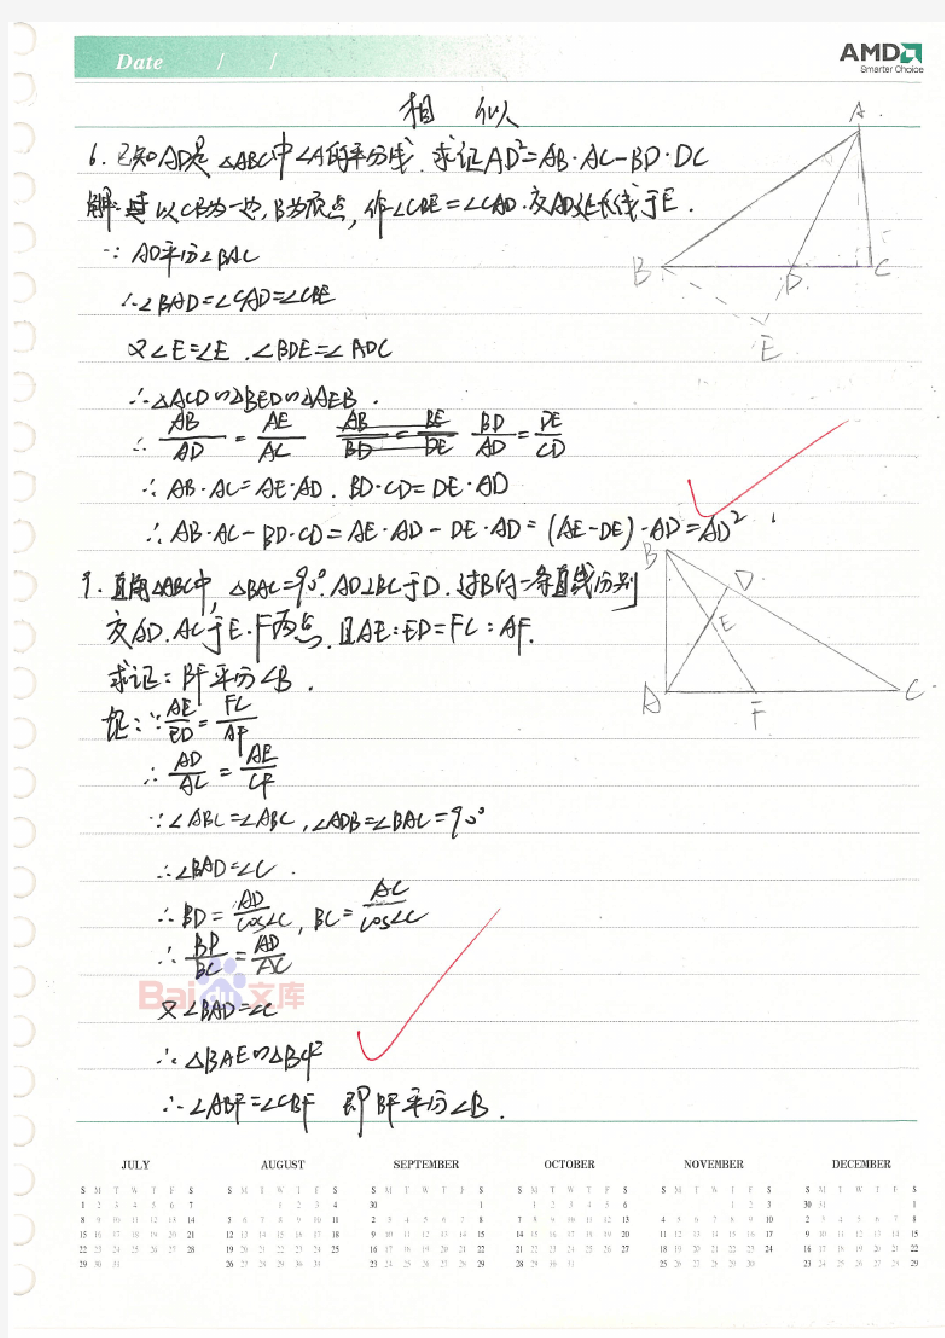 Date / /
AMD
Smarter Choice
相 似
6. 已知AD是△ABC中∠A的平分线. 求证AD²=AB·AC-BD·DC
解: 以CB为一边, B为顶点, 作∠CBE=∠CAD. 交AD延长线于E.
∵ AD平分∠BAC
∴∠BAD=∠CAD=∠CBE
又∠E=∠E . ∠BDE=∠ADC
∴△ACD∽△BED∽△AEB .
∴ AB/AD = AE/AC AB/BD = BE/DE BD/AD = DE/CD
∴ AB·AC=AE·AD . BD·CD=DE·AD
∴ AB·AC-BD·CD=AE·AD-DE·AD=(AE-DE)·AD=AD²
A
B
D
C
E
9. 直角△ABC中, △BAC=90°. AD⊥BC于D. 过B的一条直线分别
交AD. AC于E. F两点. 且AE:ED=FC:AF.
求证: BF平分∠B .
B
D
E
A
F
C
证: ∵ AE/ED = FC/AF
∴ AD/AC = AE/CF
∵∠ABC=∠ABC, ∠ADB=∠BAC=90°
∴∠BAD=∠C .
∴ BD= AD/cos∠C , BC= AC/cos∠C
∴ BD/BC = AD/AC
Bai 文库
又∠BAD=∠C
∴ △BAE∽△BCF
∴∠ABF=∠CBF 即BF平分∠B .
JULY AUGUST SEPTEMBER OCTOBER NOVEMBER DECEMBER
S M T W T F S S M T W T F S S M T W T F S S M T W T F S S M T W T F S S M T W T F S
1 2 3 4 5 6 7 1 2 3 4 30 1 1 2 3 4 5 6 1 2 3 30 31 1
8 9 10 11 12 13 14 5 6 7 8 9 10 11 2 3 4 5 6 7 8 7 8 9 10 11 12 13 4 5 6 7 8 9 10 2 3 4 5 6 7 8
15 16 17 18 19 20 21 12 13 14 15 16 17 18 9 10 11 12 13 14 15 14 15 16 17 18 19 20 11 12 13 14 15 16 17 9 10 11 12 13 14 15
22 23 24 25 26 27 28 19 20 21 22 23 24 25 16 17 18 19 20 21 22 21 22 23 24 25 26 27 18 19 20 21 22 23 24 16 17 18 19 20 21 22
29 30 31 26 27 28 29 30 31 23 24 25 26 27 28 29 28 29 30 31 25 26 27 28 29 30 23 24 25 26 27 28 29